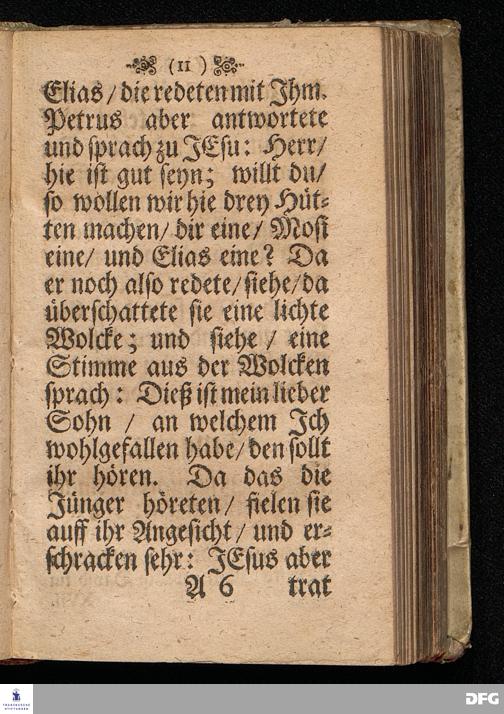 (11)
Elias/ die redeten mit Jhm.
Petrus aber antwortete
und sprach zu JEsu: Herr/
hie ist gut seyn; willt du/
so wollen wir hie drey Hüt⸗
ten machen/ dir eine/ Mosi
eine/ und Elias eine? Da
er noch also redete/ siehe/ da
überschattete sie eine lichte
Wolcke; und siehe / eine
Stimme aus der Wolcken
sprach: Dieß ist mein lieber
Sohn / an welchem Jch
wohlgefallen habe/ den sollt
ihr hören. Da das die
Jünger höreten/ fielen sie
auff ihr Angesicht/ und er⸗
schracken sehr: JEsus aber
A 6 trat
FRANCKESCHE
STIFTUNGEN
DFG